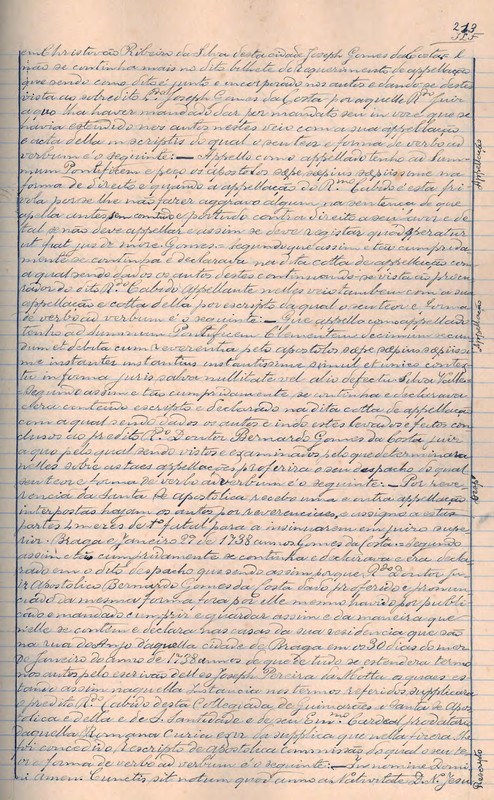 213
em Christovão Ribeiro da Silva desta cidade Joseph Gomes da Costa e
não se continha mais no dito bilhete de requerimento de appellação
que sendo como dito é junto e incorporado nos autos e dando-se destes
vista ao sobredito Joseph Gomes da Costa por aquelle Rdo Juiz
a quo lha haver mandado dar por mandato seu in voce que se
havia estendido nos autos nestes veio com a sua appellação
e cota della in scriptis do qual o seu teor e forma de verbo ad
verbum é o seguinte: — Appello como appellado tenho ad Sum-
mum Pontificem e peço os apostolos saepe saepius saepissime na
forma de direito e quando a appellação do Rmo Cabido é esta fri-
vola por se lhe não fazer aggravo algum na sentença de que
appella antes sem contra o pertendo contra direito a seu favor e de
tal se não deve appellar e assim se deve registar quod speratur
ut fiat jus de more Gomes = segundo que assim e tão cumprida
mente se continha e declarava na dita cotta de appellação com
a qual sendo dados os autos destes continuando-se vista ao procu-
rador do dito Rmo Cabido Appellante nelles veio tambem com a sua
appellação e cotta della por escripto da qual o seu teor e forma
de verbo ad verbum é o seguinte: — Que appello como appellado
tenho ad Summum Pontificem Clementem decimum secun-
dum et debita cum reverentia peto apostolos saepe saepius saepissi-
me instanter instantius instantissime simul et unico contex-
tu in forma juris salva nullitate vel aliis defectus Silva Valle =
Segundo assim e tão cumpridamente se continha e declarava e
era contando escripto e declarado na dita cotta de appellação
com a qual sendo dados os autos e indo estes levados e feitos con-
clusos ao predito R. Doutor Bernardo Gomes da Costa juiz
a quo pelo qual sendo vistos e examinados pelo que determinara
nelles sobre ditas appellações proferira o seu despacho do qual
seu teor e forma de verbo ad verbum é o seguinte: — Por reve-
rencia da Santa Sé Apostolica recebo uma e outra appellação
interpostas hajam os autos por reverenciaes, e assigno ás ditas
partes 4 mezes de to fatal para a insinuarem em juizo supe-
rior. Braga e Janeiro 29 de 1738 annos Gomes da Costa = segundo
assim e tão cumpridamente se continha e declarava e era decla-
rado em o dito despacho que sendo assim por que Rdo Doutor Ju-
iz Apostolico Bernardo Gomes da Costa dado proferido e pronun-
ciado da mesma forma fora por elle mesmo havido por publi-
cado e mandado cumprir e guardar assim e da maneira que
nelle se contém e declara nas casas da sua residencia que são
na rua do Anjo daquella cidade de Braga em os 30 dias do mez
de Janeiro do anno de 1738 annos de que de tudo se estendera termo
nos autos pelo escrivão delles Joseph Pereira da Motta e quaes es-
tando assim naquella instancia nos termos referidos supplicara
o predito R. Cabido desta Collegiada de Guimarães á Santa Sé Apos-
tolica e della e de S. Santidade e de seu Emmo Cardeal prodatario
daquella Romana Curia e por da supplica que nella fizera lhe
foi concedido o rescripto de apostolica commissão do qual o seu te-
or e forma de verbo ad verbum é o seguinte: — In nomine Domi-
ni Amem Cunctis sit notum quod anno a Nativitate D. N. Jesu
Appellação
Appellação
Desp.º
Rescripto